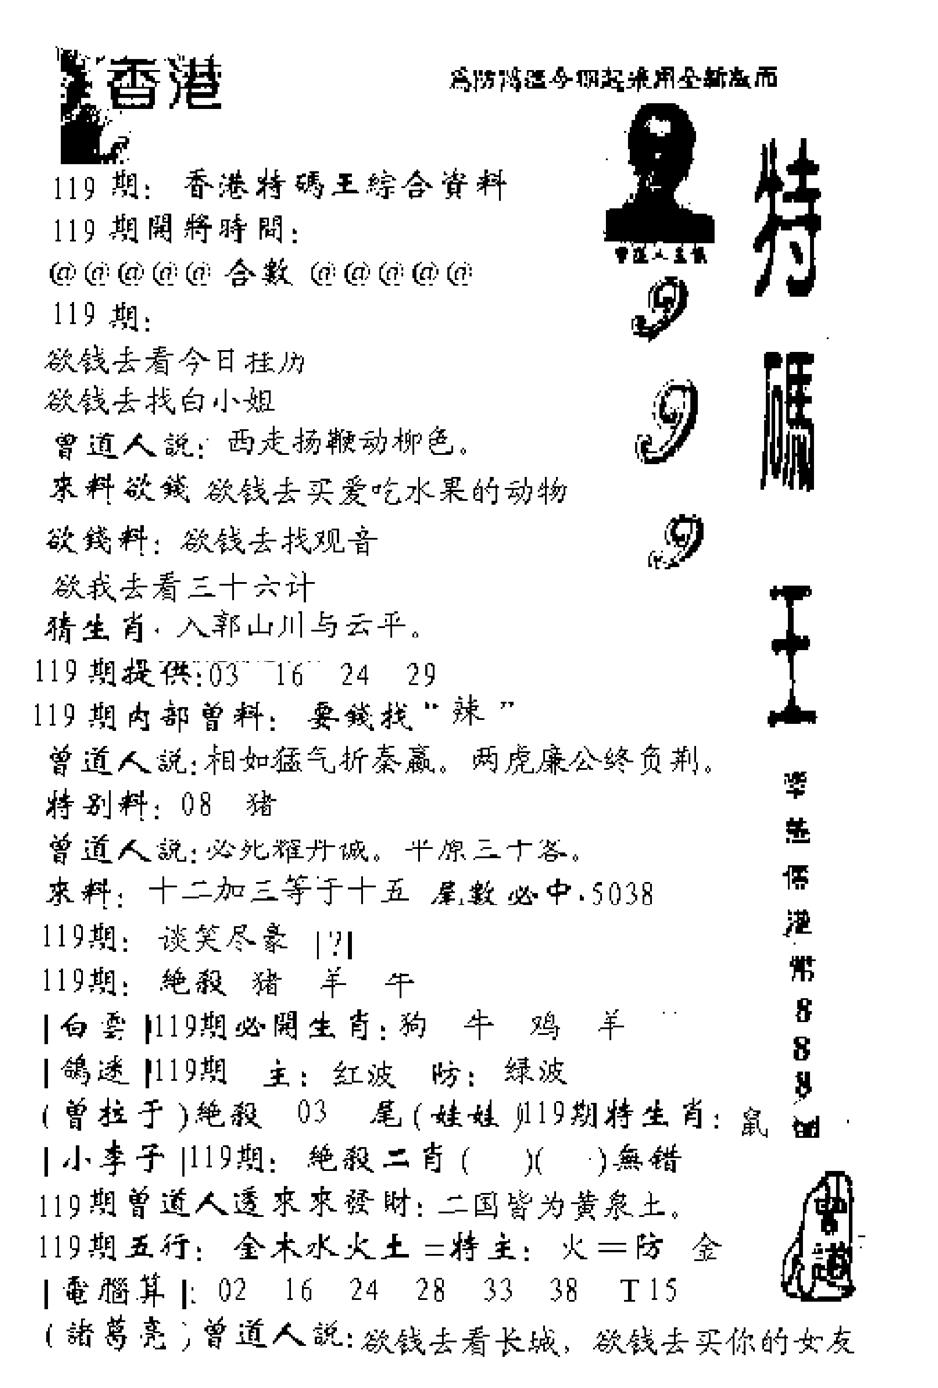 香港
119 期: 香港特碼王綜合資料
119 期開將時間:
@@@@@ 合數 @@@@@
119 期:
欲钱去看今日挂历
欲钱去找白小姐
曾道人説: 西走扬鞭动柳色。
來料欲錢 欲钱去买爱吃水果的动物
欲錢料: 欲钱去找观音
欲我去看三十六计
猜生肖. 入郭山川与云平。
119 期提供:03 16 24 29
119 期内部曾料: 要錢找“辣”
曾道人説:相如猛气折秦嬴。两虎廉公终负荆。
特别料: 08 猪
曾道人説:必死耀丹诚。平原三十客。
來料: 十二加三等于十五 尾數必中.5038
119期: 谈笑尽豪 |?|
119期: 絶殺 猪 羊 牛
|白雲|119期必開生肖:狗 牛 鸡 羊
|鸽迷|119期 主: 紅波 防: 绿波
(曾拉于)絶殺 03 尾(娃娃)119期特生肖: 鼠
|小李子|119期: 絶殺二肖( )( )無错
119期曾道人透來來發財:二国皆为黄泉土。
119期五行: 金木水火土=特主: 火=防 金
|電腦算|: 02 16 24 28 33 38 T15
(諸葛亮)曾道人説:欲钱去看长城, 欲钱去买你的女友
為防 今期起采用全新版面
曾道人主
9
9
9
特
碼
王
港
幣
8
8
8
曾道